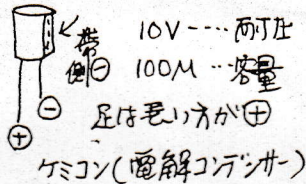 10V‥‥耐圧
帯側⊖
100M‥‥容量
⊖
足は長い方が⊕
⊕
ケミコン(電解コンデンサー)